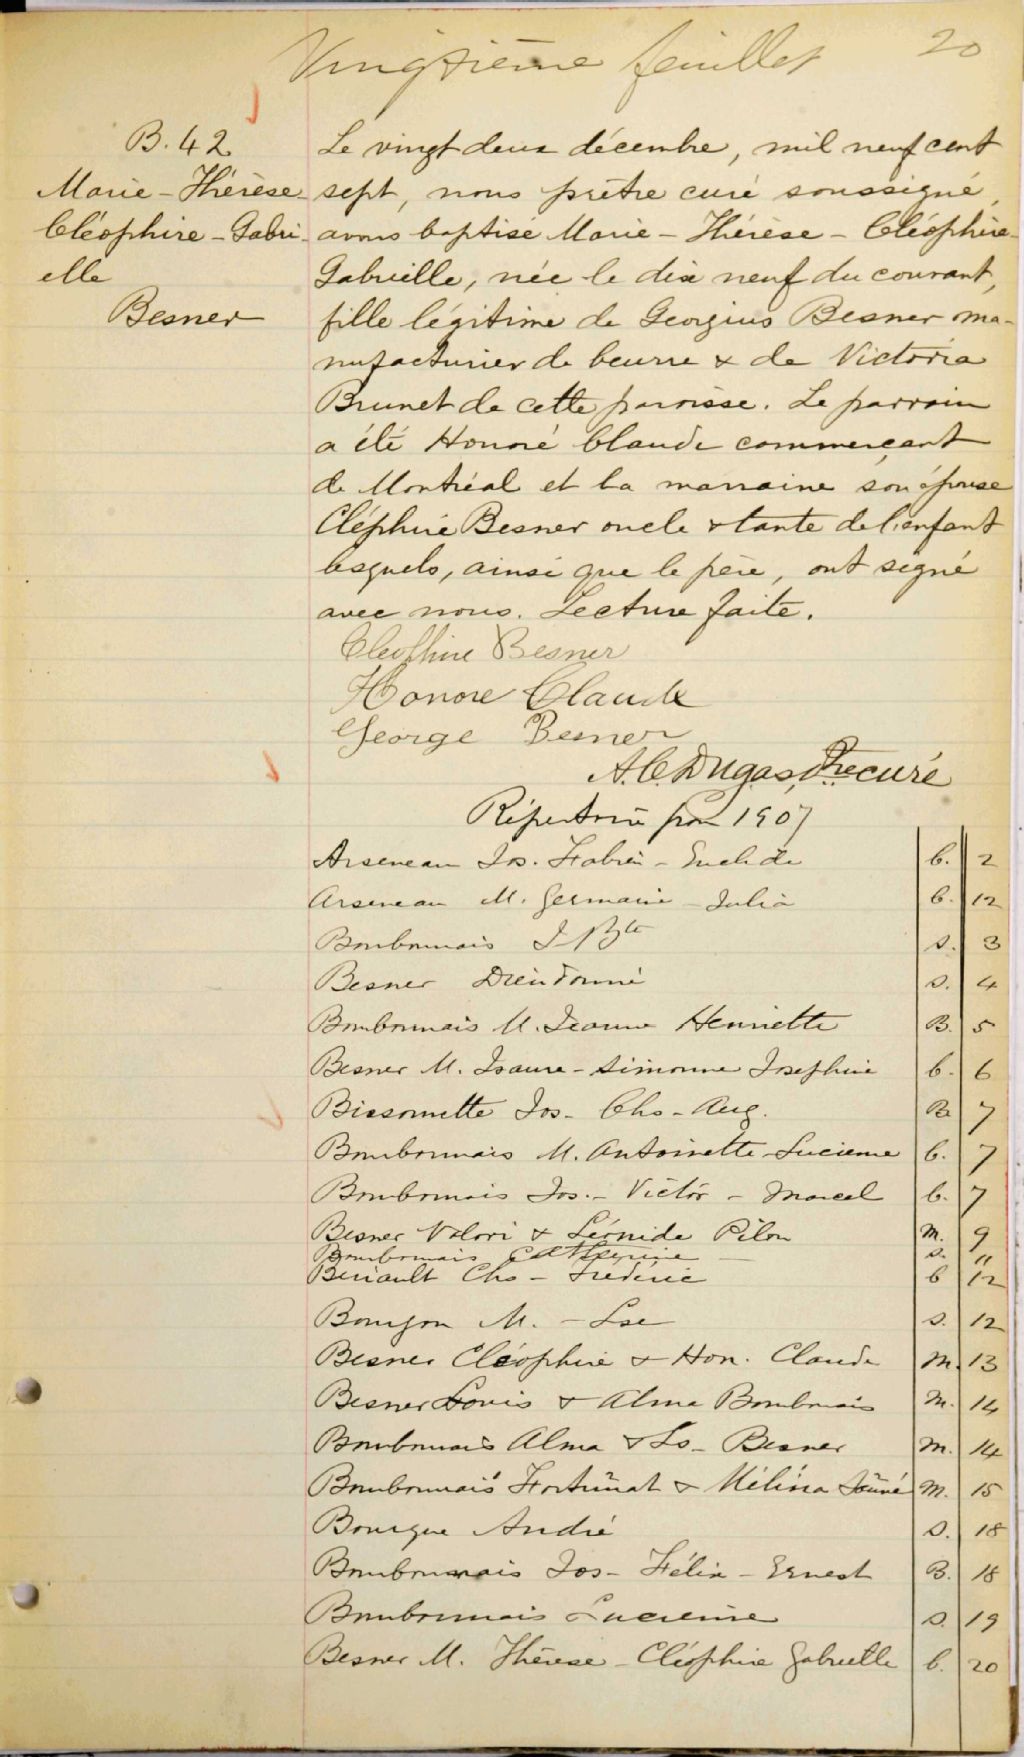 Vingtième feuillet 20
B. 42
Marie-Thérèse-
Cléophire-Gabri-
elle
Besner
Le vingt deux décembre, mil neuf cent
sept, nous prêtre curé soussigné,
avons baptisé Marie-Thérèse-Cléophire-
Gabrielle, née le dix neuf du courant,
fille légitime de Georgius Besner ma-
nufacturier de beurre & de Victoria
Brunet de cette paroisse. Le parrain
a été Honoré Claude commerçant
de Montréal et la marraine son épouse
Cléphire Besner oncle & tante de l'enfant
lesquels, ainsi que le père, ont signé
avec nous. Lecture faite.
Cleophire Besner
Honore Claude
George Besner
A. C. Dugas, Ptre curé
Répertoire pour 1907
Arseneau Jos. Fabien-Euclide b. 2
Arseneau M. Germaine-Julia b. 12
Bourbonnais J Bte s. 3
Besner Dieudonné s. 4
Bourbonnais M. Jeanne Henriette B. 5
Besner M. Isaure-Simonne Josephine b. 6
Bissonnette Jos-Chs-Aug. B. 7
Bourbonnais M. Antoinette-Lucienne b. 7
Bourbonnais Jos.-Victor-Marcel b. 7
Besner Valori & Léonide Pilon M. 9
Bourbonnais Catherine s. 11
Bériault Chs-Frederic b 12
Bourgon M.-Lse s. 12
Besner Cléophire & Hon. Claude M. 13
Besner Louis & Alma Bourbonnais M. 14
Bourbonnais Alma & Ls-Besner M. 14
Bourbonnais Fortunat & Mélina M. 15
Bourque André s. 18
Bourbonnais Jos-Félix-Ernest B. 18
Bourbonnais Lucienne s. 19
Besner M. Thérese-Cléophire Gabrielle b. 20